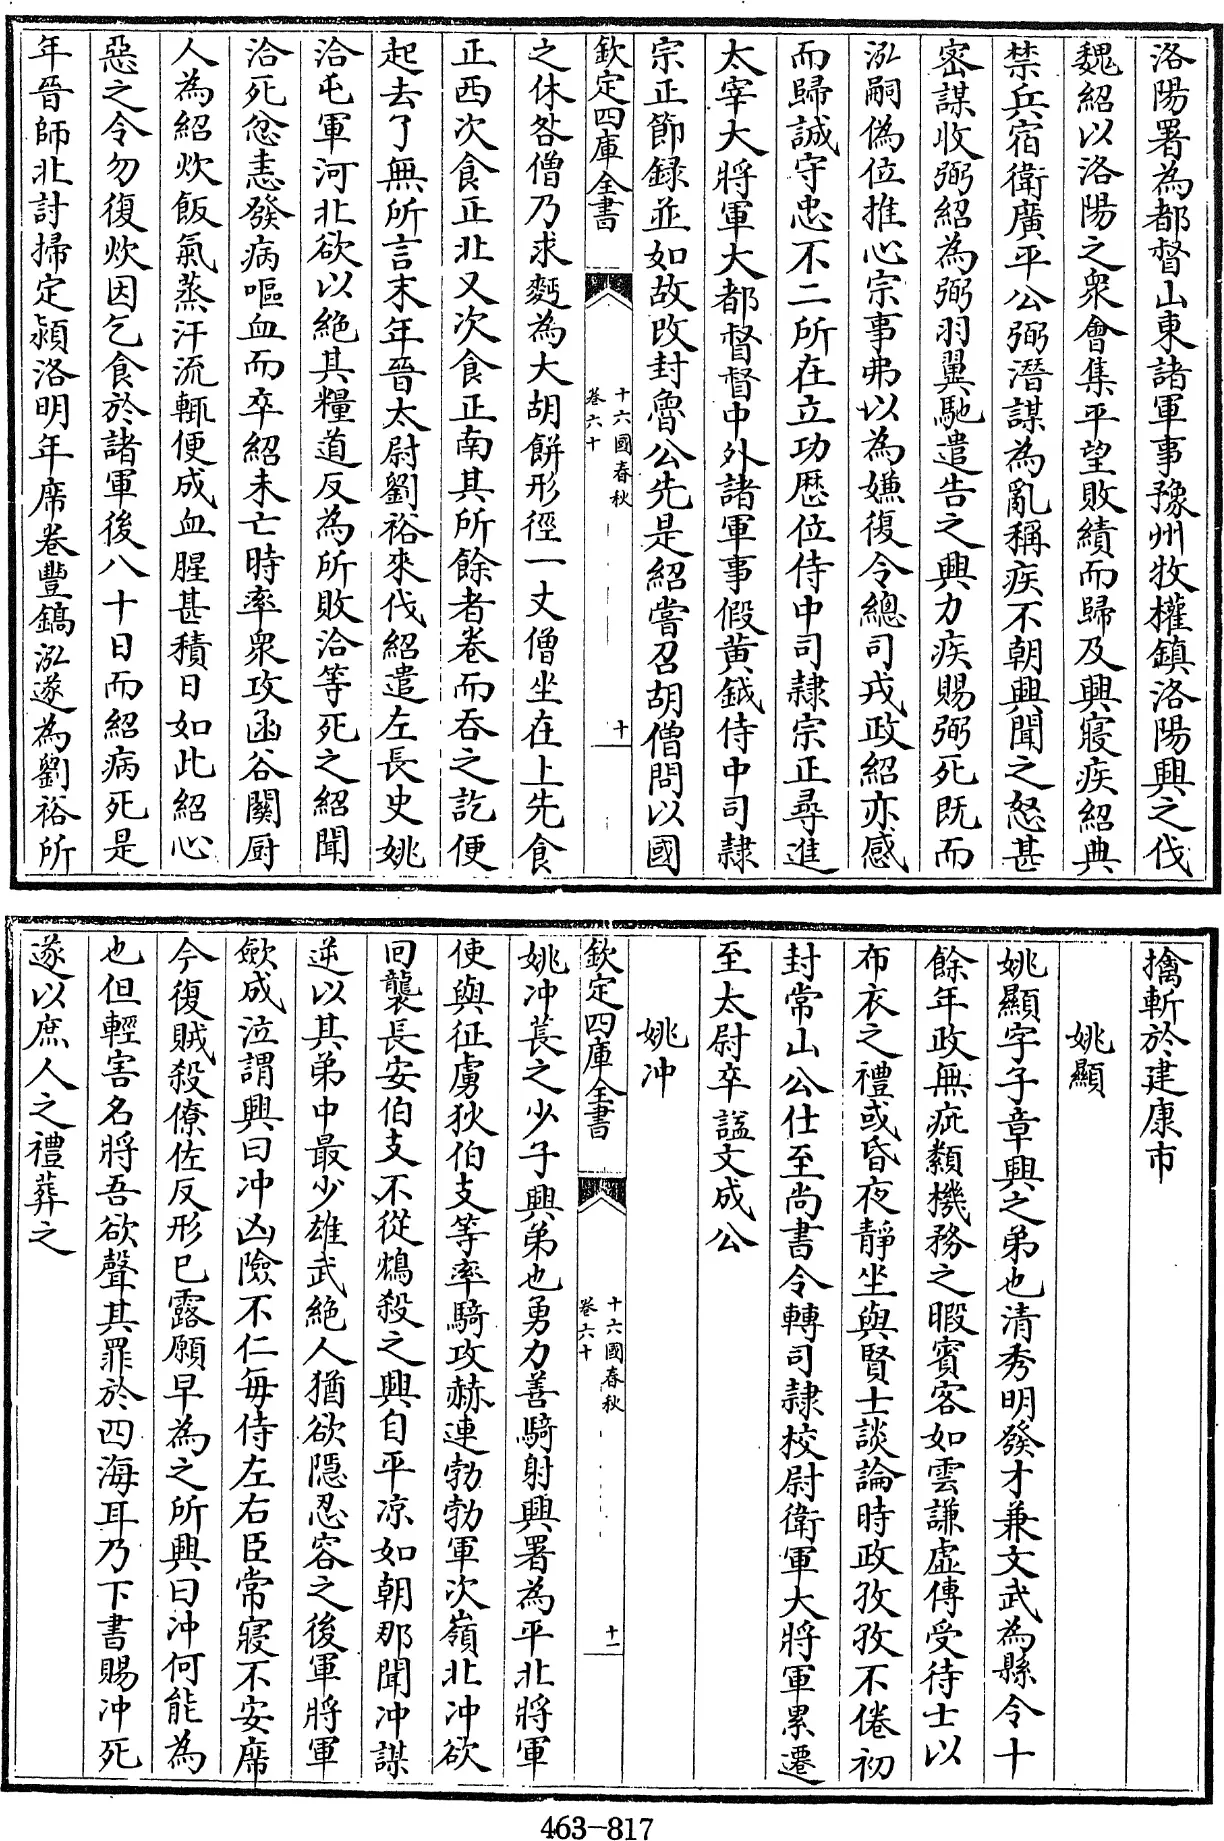 洛陽署為都督山東諸軍事豫州牧權鎮洛陽興之伐
魏紹以洛陽之衆會集平望敗績而歸及興寢疾紹典
禁兵宿衛廣平公弼潛謀為亂稱疾不朝興聞之怒甚
密謀收弼紹為弼羽翼馳遣告之興力疾賜弼死既而
泓嗣偽位推心宗事弗以為嫌復令總司戎政紹亦感
而歸誠守忠不二所在立功歴位侍中司隸宗正尋進
太宰大將軍大都督督中外諸軍事假黄鉞侍中司隸
宗正節録並如故改封魯公先是紹嘗召胡僧問以國
欽定四庫全書
十六國春秋
卷六十
十
之休咎僧乃求麪為大胡餅形徑一丈僧坐在上先食
正西次食正北又次食正南其所餘者卷而吞之訖便
起去了無所言末年晉太尉劉裕來伐紹遣左長史姚
洽屯軍河北欲以絶其糧道反為所敗洽等死之紹聞
洽死忿恚發病嘔血而卒紹未亡時率衆攻函谷關厨
人為紹炊飯氣蒸汗流輒便成血腥甚積日如此紹心
惡之令勿復炊因乞食於諸軍後八十日而紹病死是
年晉師北討掃定潁洛明年席卷豐鎬泓遂為劉裕所
擒斬於建康市
姚顯
姚顯字子章興之弟也清秀明發才兼文武為縣令十
餘年政無疵纇機務之暇賓客如雲謙虚傳受待士以
布衣之禮或昏夜靜坐與賢士談論時政孜孜不倦初
封常山公仕至尚書令轉司隸校尉衛軍大將軍累遷
至太尉卒諡文成公
姚冲
欽定四庫全書
十六國春秋
卷六十
十一
姚冲萇之少子興弟也勇力善騎射興署為平北將軍
使與征虜狄伯支等率騎攻赫連勃勃軍次嶺北冲欲
回襲長安伯支不從鴆殺之興自平凉如朝那聞冲謀
逆以其弟中最少雄武絶人猶欲隱忍容之後軍將軍
歛成泣謂興曰冲凶險不仁每侍左右臣常寢不安席
今復賊殺僚佐反形已露願早為之所興曰冲何能為
也但輕害名將吾欲聲其罪於四海耳乃下書賜冲死
遂以庶人之禮葬之
463-817